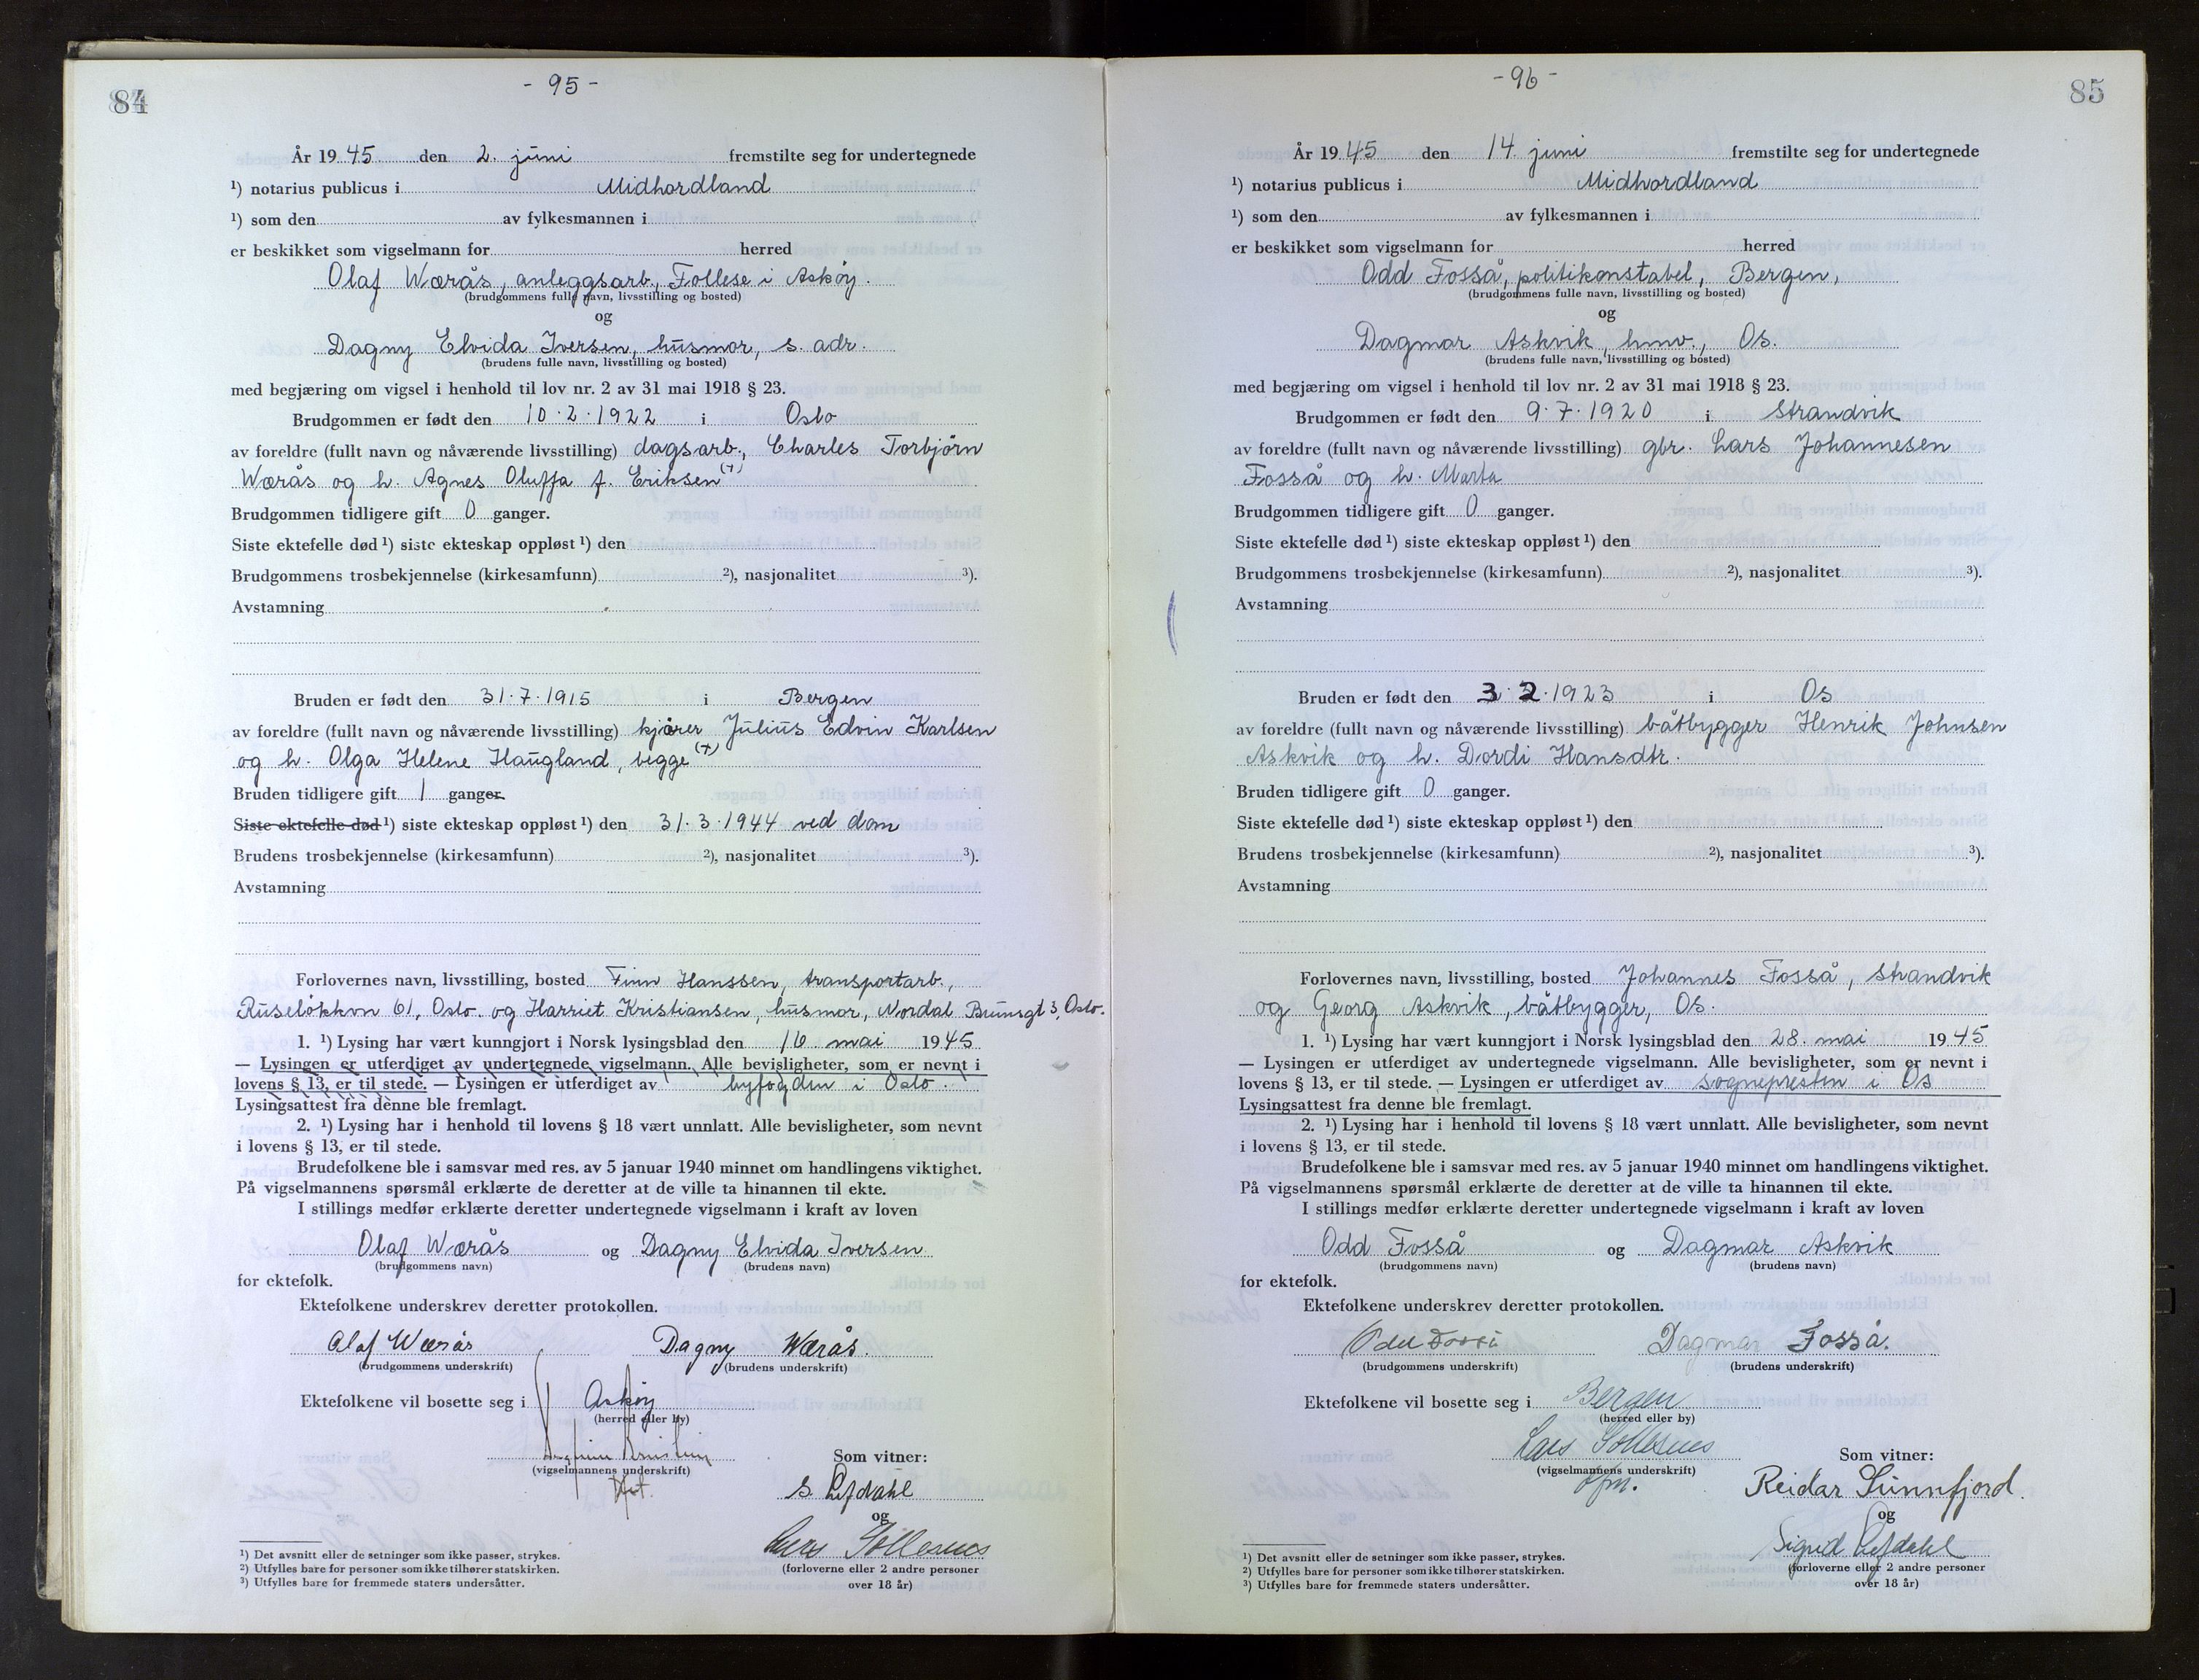 84
- 95 -
År 19 45 den 2. juni fremstilte seg for undertegnede
¹) notarius publicus i Midhordland
¹) som den av fylkesmannen i
er beskikket som vigselmann for herred
Olaf Wærås, anleggsarb., Follese i Askøy.
(brudgommens fulle navn, livsstilling og bosted)
og
Dagny Elvida Iversen, husmor, s. adr.
(brudens fulle navn, livsstilling og bosted)
med begjæring om vigsel i henhold til lov nr. 2 av 31 mai 1918 § 23.
Brudgommen er født den 10.2.1922 i Oslo
av foreldre (fullt navn og nåværende livsstilling) dagsarb., Charles Torbjörn
Wærås og h. Agnes Oluffa f. Eriksen (+)
Brudgommen tidligere gift 0 ganger.
Siste ektefelle død ¹) siste ekteskap oppløst ¹) den
Brudgommens trosbekjennelse (kirkesamfunn) ²), nasjonalitet ³).
Avstamning
Bruden er født den 31.7.1915 i Bergen
av foreldre (fullt navn og nåværende livsstilling) kjører Julius Edvin Karlsen
og h. Olga Helene Haugland, begge (+)
Bruden tidligere gift 1 ganger
Siste ektefelle død ¹) siste ekteskap oppløst ¹) den 31.3.1944 ved dom
Brudens trosbekjennelse (kirkesamfunn) ²), nasjonalitet ³).
Avstamning
Forlovernes navn, livsstilling, bosted Finn Hanssen, transportarb.,
Ruseløkkvn 61, Oslo. og Harriet Kristiansen, husmor, Nordal Brunsgt 3, Oslo.
1. ¹) Lysing har vært kunngjort i Norsk lysingsblad den 16. mai 1945
— Lysingen er utferdiget av undertegnede vigselmann. Alle bevisligheter, som er nevnt i
lovens § 13, er til stede. — Lysingen er utferdiget av byfogden i Oslo.
Lysingsattest fra denne ble fremlagt.
2. ¹) Lysing har i henhold til lovens § 18 vært unnlatt. Alle bevisligheter, som nevnt
i lovens § 13, er til stede.
Brudefolkene ble i samsvar med res. av 5 januar 1940 minnet om handlingens viktighet.
På vigselmannens spørsmål erklærte de deretter at de ville ta hinannen til ekte.
I stillings medfør erklærte deretter undertegnede vigselmann i kraft av loven
Olaf Wærås og Dagny Elvida Iversen
(brudgommens navn) (brudens navn)
for ektefolk.
Ektefolkene underskrev deretter protokollen.
Olaf Wærås Dagny Wærås.
(brudgommens underskrift) (brudens underskrift)
Ektefolkene vil bosette seg i Askøy
(herred eller by)
Som vitner:
(vigselmannens underskrift)
S. Lefdahl
og
Lars Sollesnes
(forloverne eller 2 andre personer
over 18 år)
¹) Det avsnitt eller de setninger som ikke passer, strykes.
²) Utfylles bare for personer som ikke tilhører statskirken.
³) Utfylles bare for fremmede staters undersåtter.
85
- 96 -
År 19 45 den 14. juni fremstilte seg for undertegnede
¹) notarius publicus i Midhordland
¹) som den av fylkesmannen i
er beskikket som vigselmann for herred
Odd Fosså, politikonstabel, Bergen,
(brudgommens fulle navn, livsstilling og bosted)
og
Dagmar Askvik, hmv., Os.
(brudens fulle navn, livsstilling og bosted)
med begjæring om vigsel i henhold til lov nr. 2 av 31 mai 1918 § 23.
Brudgommen er født den 9.7.1920 i Strandvik
av foreldre (fullt navn og nåværende livsstilling) gbr. Lars Johannesen
Fosså og h. Marta
Brudgommen tidligere gift 0 ganger.
Siste ektefelle død ¹) siste ekteskap oppløst ¹) den
Brudgommens trosbekjennelse (kirkesamfunn) ²), nasjonalitet ³).
Avstamning
Bruden er født den 3.2.1923 i Os
av foreldre (fullt navn og nåværende livsstilling) båtbygger Henrik Johnsen
Askvik og h. Dordi Hansdtr.
Bruden tidligere gift 0 ganger.
Siste ektefelle død ¹) siste ekteskap oppløst ¹) den
Brudens trosbekjennelse (kirkesamfunn) ²), nasjonalitet ³).
Avstamning
Forlovernes navn, livsstilling, bosted Johannes Fosså, Strandvik
og Georg Askvik, båtbygger, Os.
1. ¹) Lysing har vært kunngjort i Norsk lysingsblad den 28. mai 1945
— Lysingen er utferdiget av undertegnede vigselmann. Alle bevisligheter, som er nevnt i
lovens § 13, er til stede. — Lysingen er utferdiget av sognepresten i Os
Lysingsattest fra denne ble fremlagt.
2. ¹) Lysing har i henhold til lovens § 18 vært unnlatt. Alle bevisligheter, som nevnt
i lovens § 13, er til stede.
Brudefolkene ble i samsvar med res. av 5 januar 1940 minnet om handlingens viktighet.
På vigselmannens spørsmål erklærte de deretter at de ville ta hinannen til ekte.
I stillings medfør erklærte deretter undertegnede vigselmann i kraft av loven
Odd Fosså og Dagmar Askvik
(brudgommens navn) (brudens navn)
for ektefolk.
Ektefolkene underskrev deretter protokollen.
Odd Fosså Dagmar Fosså.
(brudgommens underskrift) (brudens underskrift)
Ektefolkene vil bosette seg i Bergen
(herred eller by)
Lars Sollesnes Som vitner:
(vigselmannens underskrift)
Reidar Sunnfjord.
og
Sigrid Lefdahl
(forloverne eller 2 andre personer
over 18 år)
¹) Det avsnitt eller de setninger som ikke passer, strykes.
²) Utfylles bare for personer som ikke tilhører statskirken.
³) Utfylles bare for fremmede staters undersåtter.